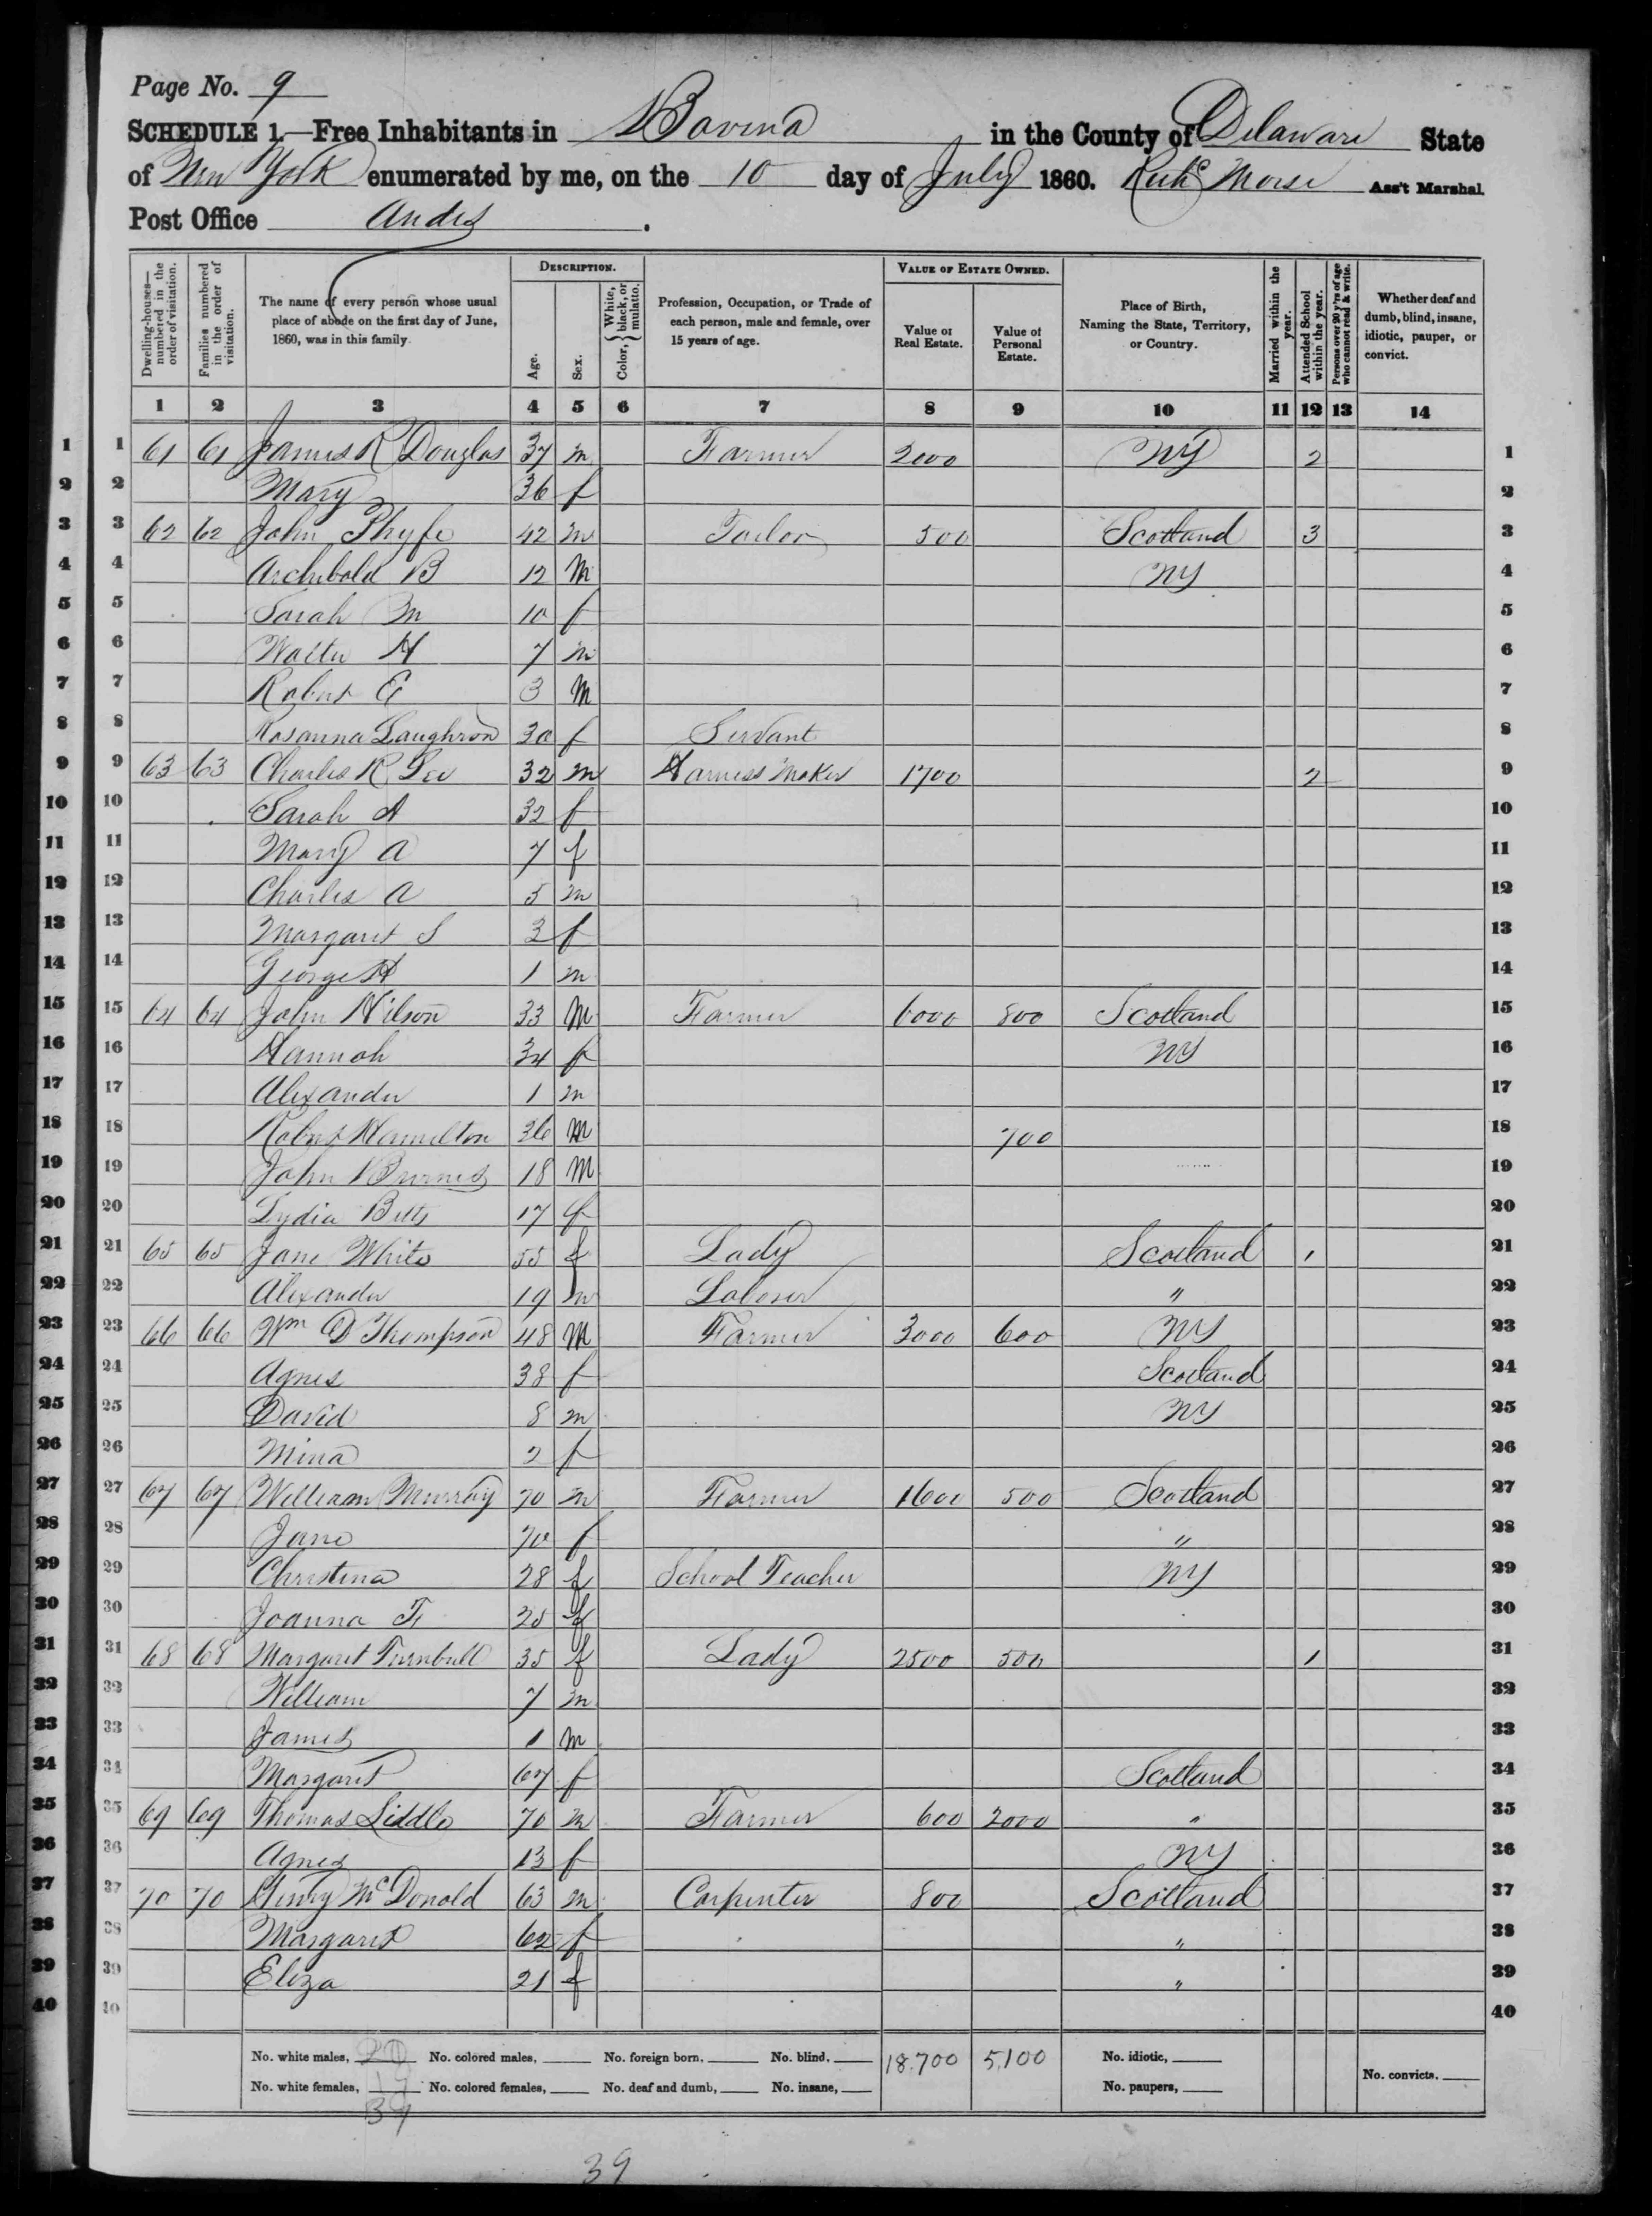 Page No. 9
SCHEDULE 1.—Free Inhabitants in Bovina in the County of Delaware State
of New York enumerated by me, on the 10 day of July 1860. Morse Ass't Marshal.
Post Office Andes.
Dwelling-houses—numbered in the order of visitation.
Families numbered in the order of visitation.
The name of every person whose usual place of abode on the first day of June, 1860, was in this family.
DESCRIPTION.
Age.
Sex.
Color, { White, black, or mulatto.
Profession, Occupation, or Trade of each person, male and female, over 15 years of age.
VALUE OF ESTATE OWNED.
Value of Real Estate.
Value of Personal Estate.
Place of Birth, Naming the State, Territory, or Country.
Married within the year.
Attended School within the year.
Persons over 20 y'rs of age who cannot read & write.
Whether deaf and dumb, blind, insane, idiotic, pauper, or convict.
1 2 3 4 5 6 7 8 9 10 11 12 13 14
1 1 61 61 James R Douglas 37 m Farmer 2000 NY 2 1
2 2 Mary 36 f 2
3 3 62 62 John Phyfe 42 m Tailor 500 Scotland 3 3
4 4 Archibald B 12 M NY 4
5 5 Sarah M 10 f 5
6 6 Walter H 7 m 6
7 7 Robert E 3 M 7
8 8 Rosanna Laughron 30 f Servant 8
9 9 63 63 Charles R Lee 32 m Harness Maker 1700 2 9
10 10 Sarah A 32 f 10
11 11 Mary A 7 f 11
12 12 Charles A 5 m 12
13 13 Margaret S 3 f 13
14 14 George H 1 m 14
15 15 64 64 John Hilson 33 M Farmer 6000 800 Scotland 15
16 16 Hannah 34 f NY 16
17 17 Alexander 1 m 17
18 18 Robert Hamilton 36 M 700 18
19 19 John Burnes 18 M 19
20 20 Lydia Betts 17 f 20
21 21 65 65 Jane White 55 f Lady Scotland 1 21
22 22 Alexander 19 m Laborer " 22
23 23 66 66 Wm D Thompson 48 M Farmer 3000 600 NY 23
24 24 Agnes 38 f Scotland 24
25 25 David 8 m NY 25
26 26 Mina 2 f 26
27 27 67 67 William Murray 70 m Farmer 1600 500 Scotland 27
28 28 Jane 70 f " 28
29 29 Christina 28 f School Teacher NY 29
30 30 Joanna F 25 f 30
31 31 68 68 Margaret Turnbull 35 f Lady 2500 500 1 31
32 32 William 7 m 32
33 33 James 1 m 33
34 34 Margaret 67 f Scotland 34
35 35 69 69 Thomas Liddle 70 m Farmer 600 2000 " 35
36 36 Agnes 13 f NY 36
37 37 70 70 Henry McDonald 63 m Carpenter 800 Scotland 37
38 38 Margaret 62 f " 38
39 39 Eliza 21 f " 39
40 40 40
No. white males, 20 No. colored males, No. foreign born, No. blind, 18.700 5,100 No. idiotic,
No. white females, 19 No. colored females, No. deaf and dumb, No. insane, No. paupers, No. convicts.
39
39